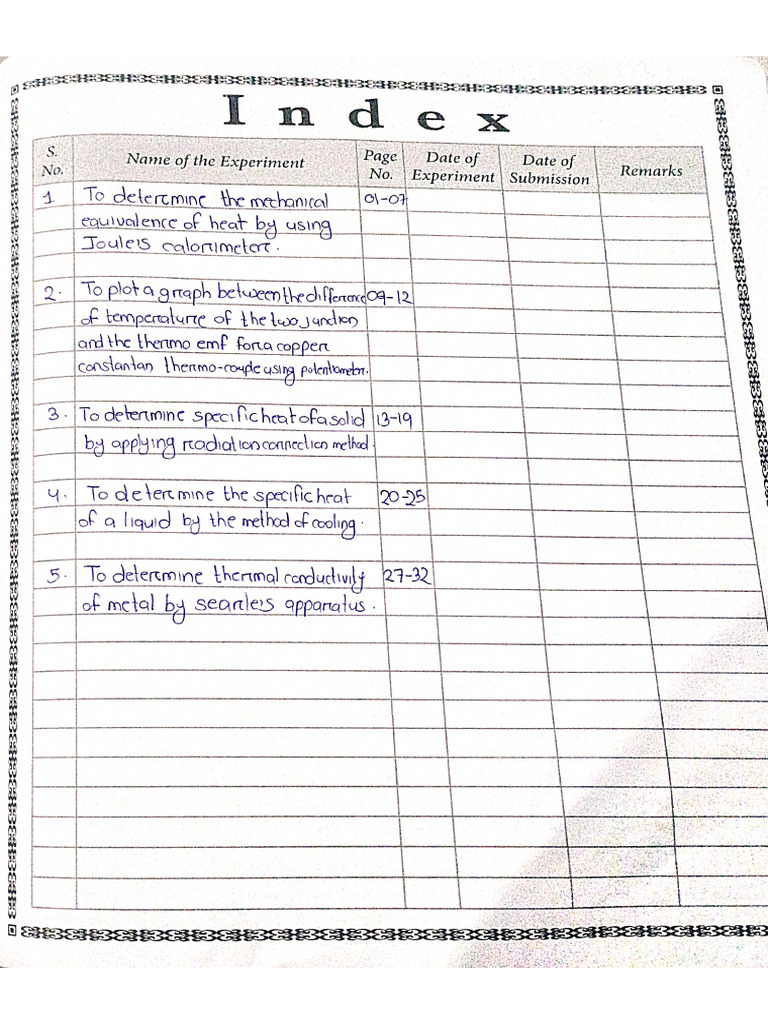 Index
S. No. Name of the Experiment Page No. Date of Experiment Date of Submission Remarks
1. To determine the mechanical 01-07
equivalence of heat by using
Joule's calorimeter.
2. To plot a graph between the difference 09-12
of temperature of the two junction
and the thermo emf for a copper
constantan thermo-couple using potentiometer.
3. To determine specific heat of a solid 13-19
by applying radiation connection method.
4. To determine the specific heat 20-25
of a liquid by the method of cooling.
5. To determine thermal conductivity 27-32
of metal by searle's apparatus.